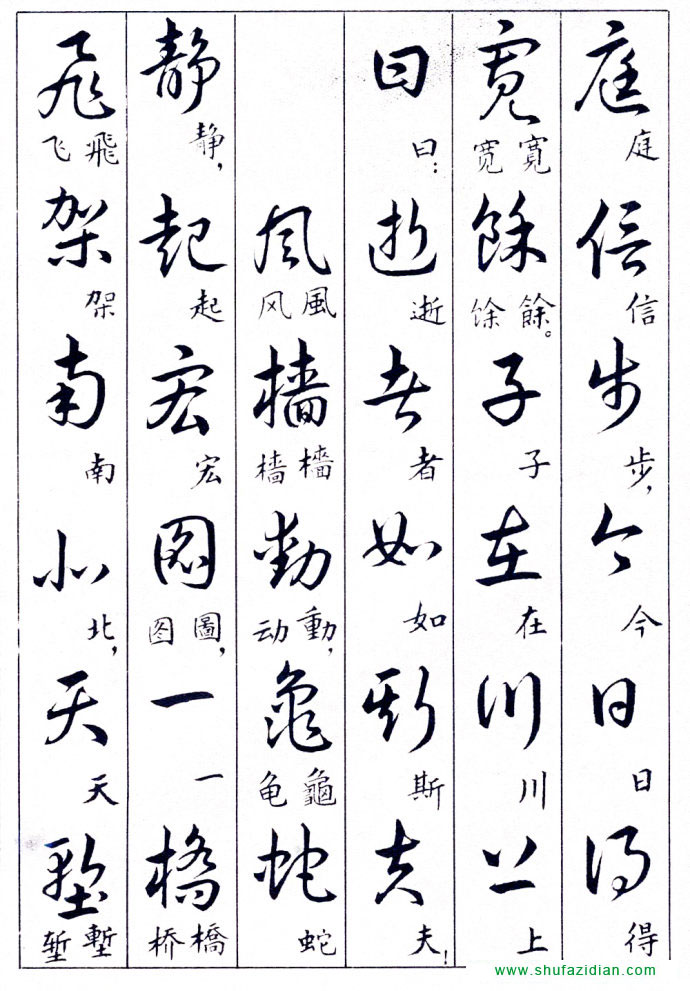 庭 庭 信 信 步 步， 今 今 日 日 得 得
寬 寬 宽 餘 餘。 馀 子 子 在 在 川 川 上 上
曰 曰： 逝 逝 者 者 如 如 斯 斯 夫 夫！
風 風 风 檣 檣 樯 動 動， 动 龜 龜 龟 蛇 蛇
静 静， 起 起 宏 宏 圖 圖， 图 一 一 橋 橋 桥
飛 飛 飞 架 架 南 南 北 北， 天 天 塹 塹 堑
www.shufazidian.com